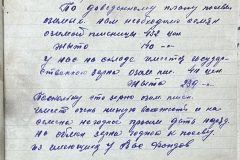 По доведенному плану посева
озимых нам необходимо обмен
озимой пшеницы 132 цен
Жыта 110 -"-
У нас на складе имеется государ
ственного зерна озим пш. 40 цен
Жыта 230 -"-
Поскольку это зерно озим пшен.
имеет очень низкую всхожесть и на
семена негодное просим дать наряд
на обмен зерна годного к посеву
из имеющих у Вас фондов